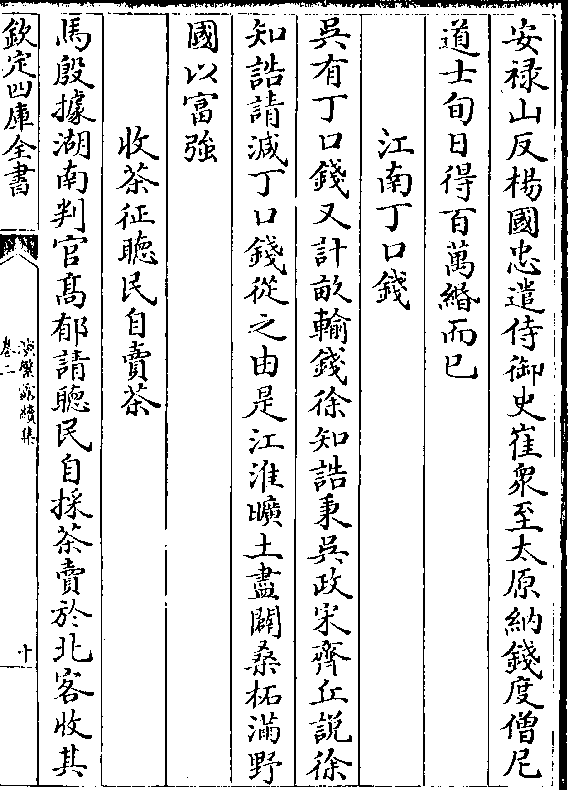 安禄山反楊國忠遣侍御史崔衆至太原納錢度僧尼
道士旬日得百萬緡而已
江南丁口錢
吳有丁口錢又計畝輸錢徐知誥秉吳政宋齊丘説徐
知誥請減丁口錢從之由是江淮曠土盡闢桑柘滿野
國以富強
收茶征聽民自賣茶
馬殷據湖南判官髙郁請聽民自採茶賣於北客收其
欽定四庫全書
演繁露續集
卷二
十